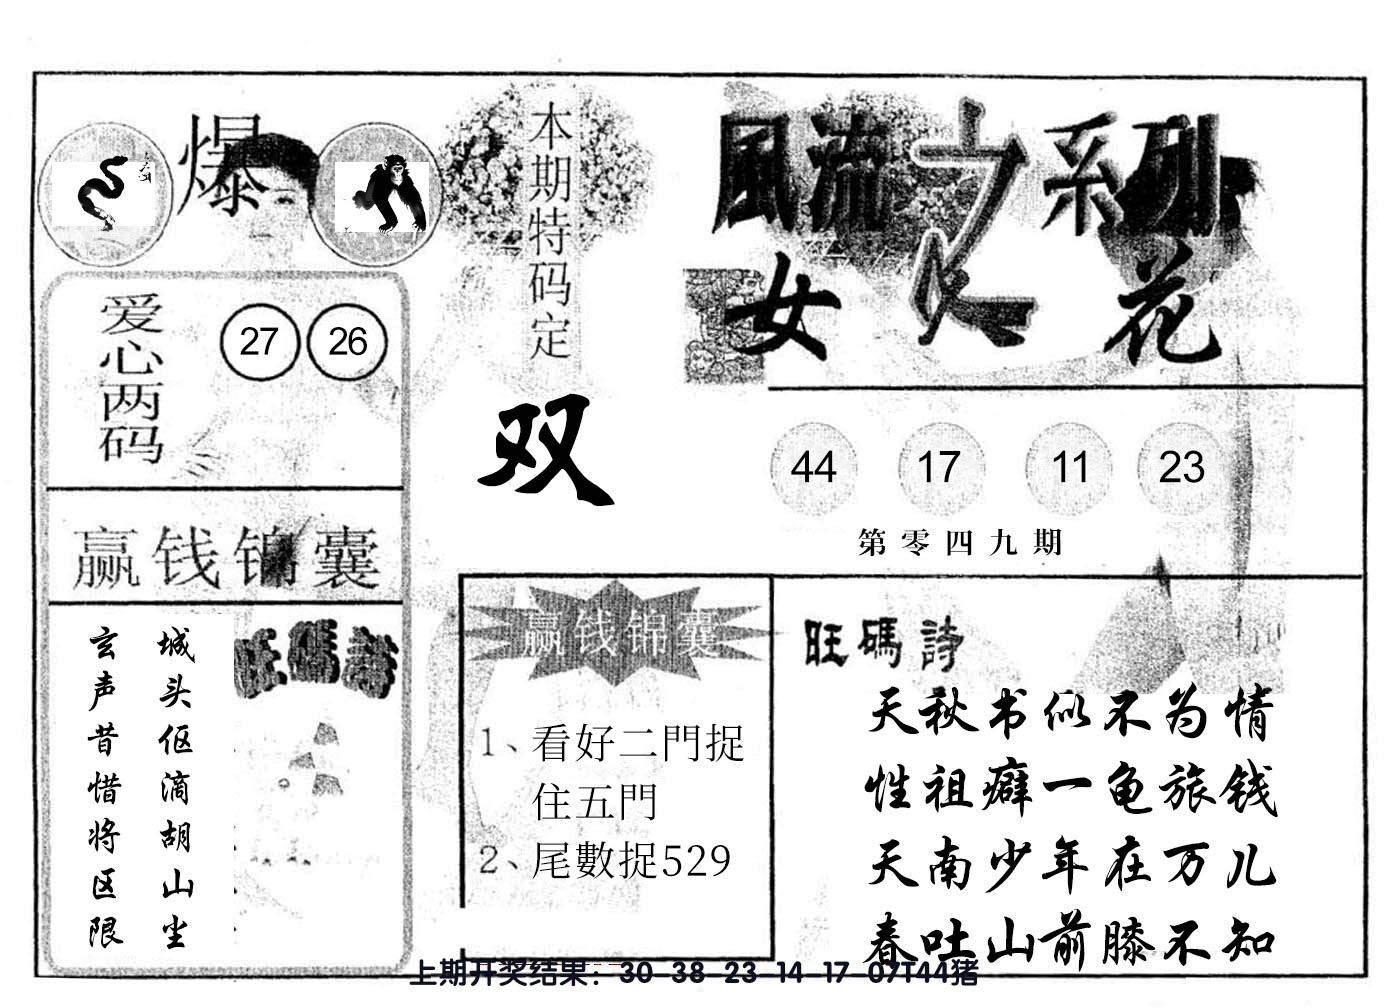 爆
爱心两码
27 26
赢钱锦囊
城头伛滴胡山尘
玄声昔惜将区限
旺碼詩
本期特码定
双
風流之系列
女人花
44 17 11 23
第零四九期
赢钱锦囊
1、看好二門捉
住五門
2、尾數捉529
旺碼詩
天秋书似不为情
性祖癖一龟旅钱
天南少年在万儿
春吐山前膝不知
上期开奖结果：30-38-23-14-17-07T44猪